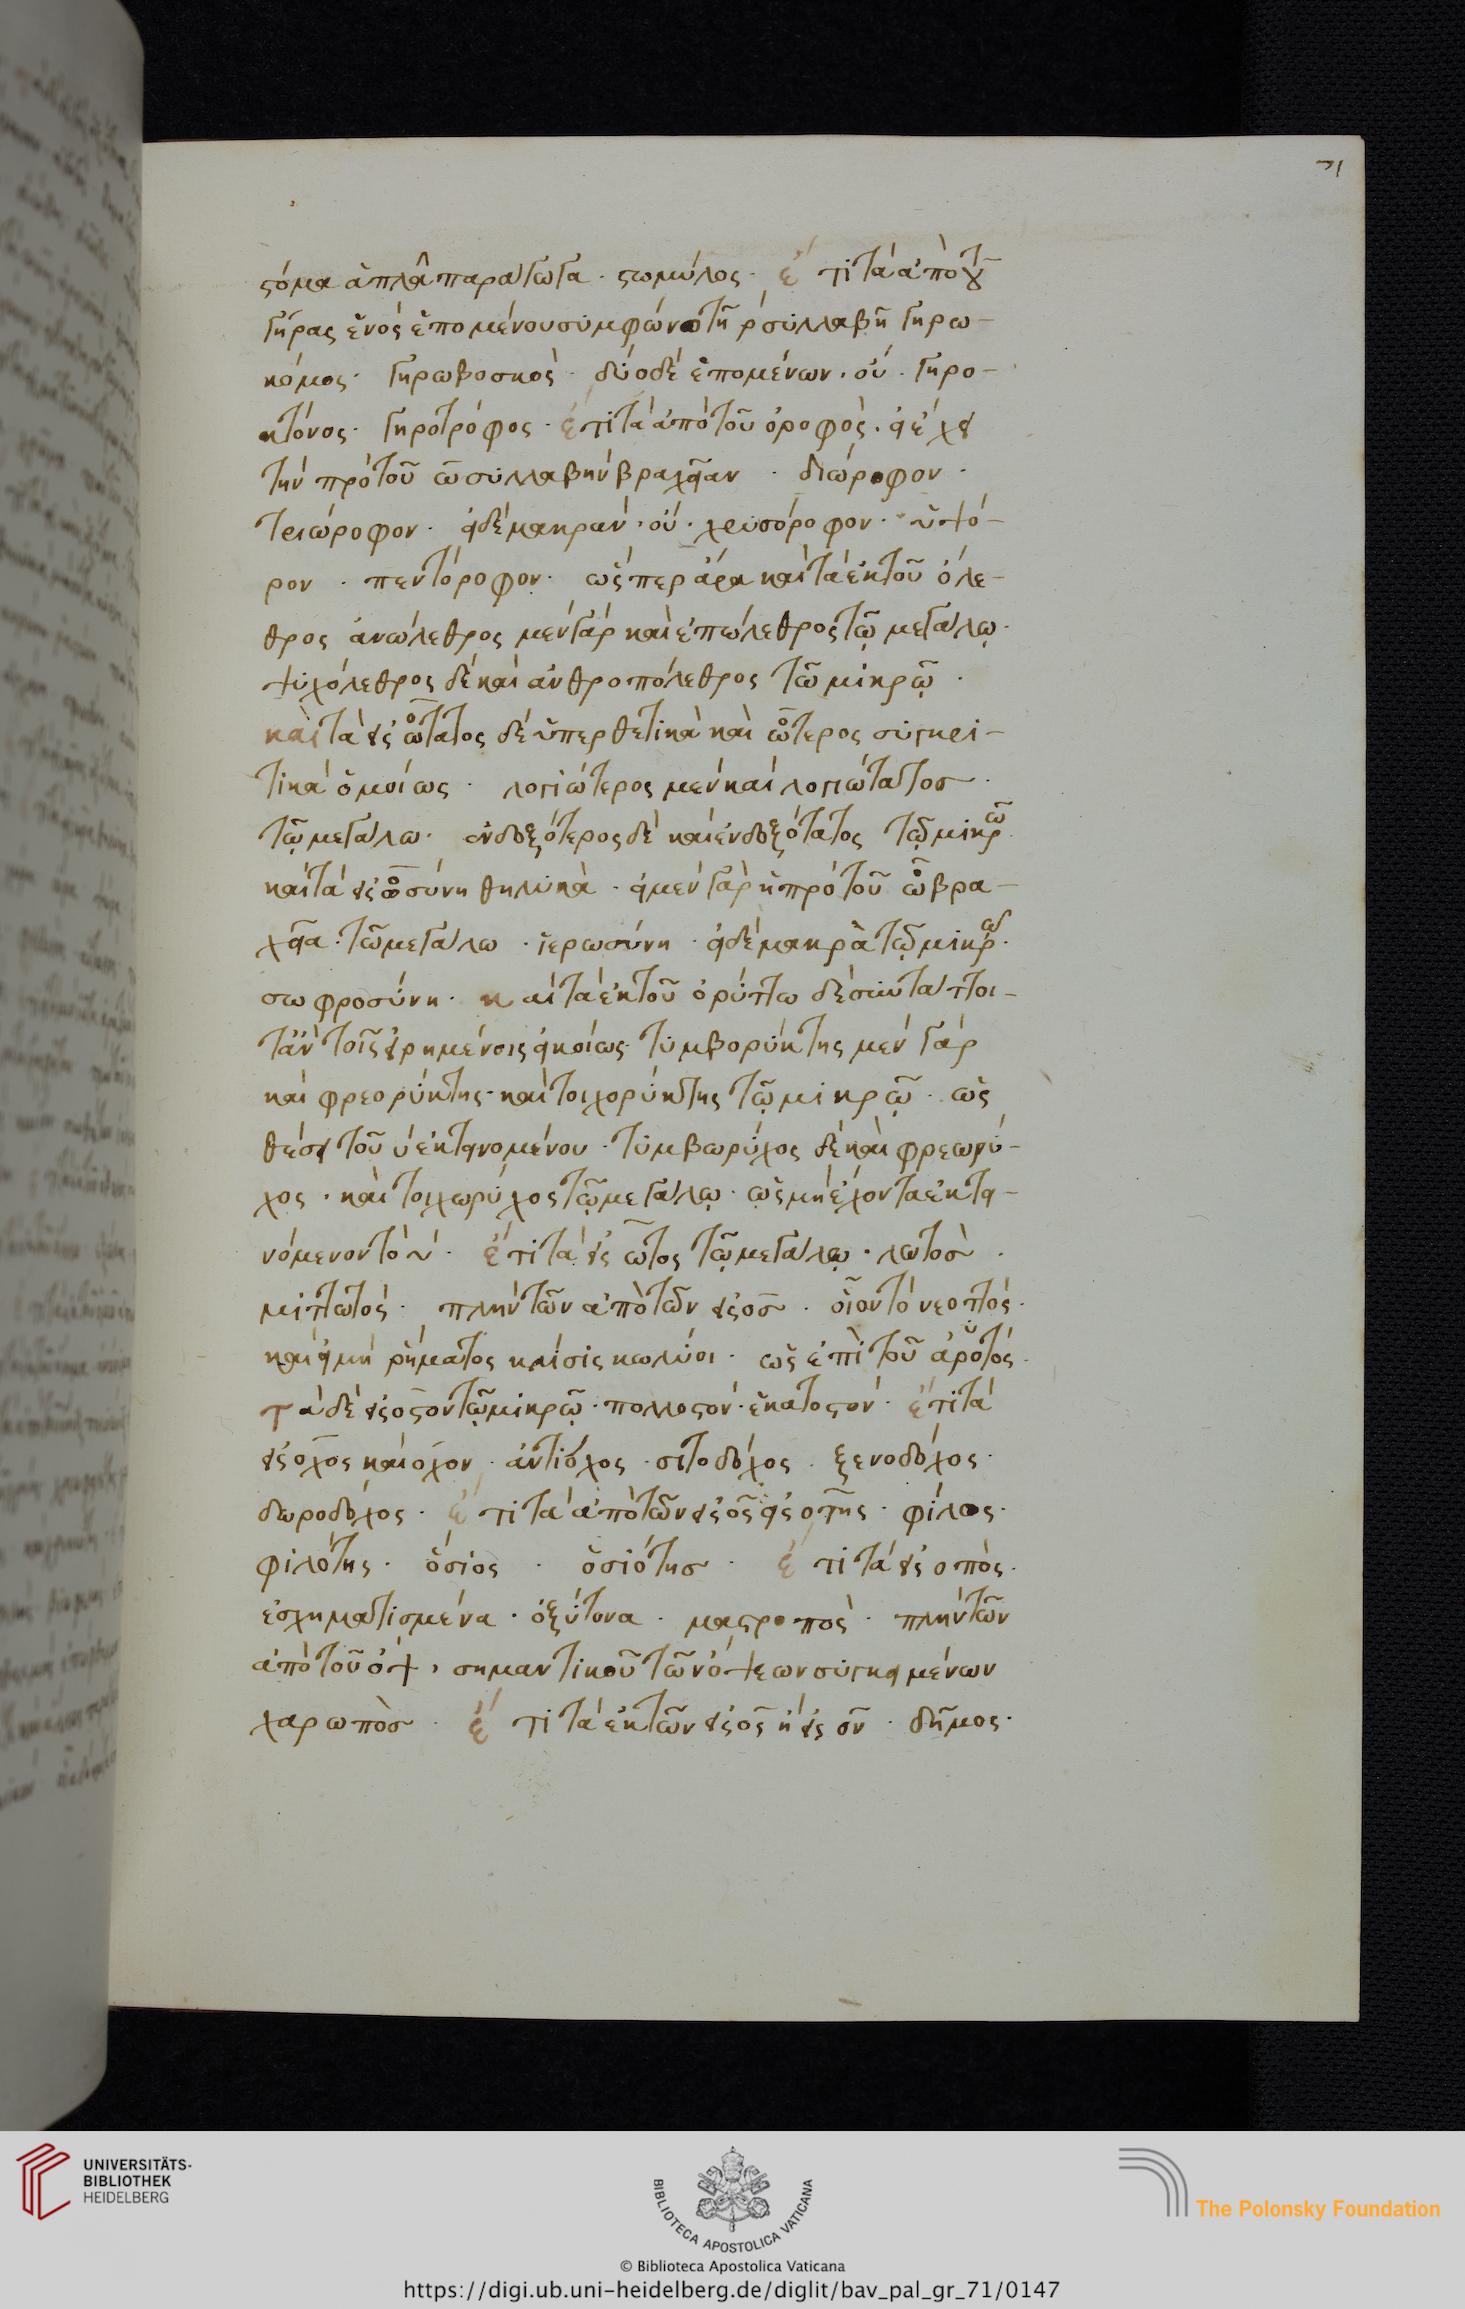 71
στόμα ἁπλᾶ παράγωγα · στωμύλος · ἔτι τὰ ἀπὸ τοῦ
γήρας ἑνὸς ἑπομένου συμφώνου τῆ ρ συλλαβῆ γηρω-
κόμος · γηρωβοσκὸς · δύο δὲ ἑπομένων · οὐ · γηρο-
κτόνος · γηροτρόφος · ἔτι τὰ ἀπὸ τοῦ ὀροφὸς · εἰ ἔχει
τὴν πρὸ τοῦ ω συλλαβὴν βραχεῖαν · διώροφον ·
τριώροφον · εἰ δὲ μακρὰν · οὐ · χρυσόροφον · ὑψό-
ρον · πεντόροφον · ὥσπερ ἄρα καὶ τὰ ἐκ τοῦ ὄλε-
θρος ἀνώλεθρος μὲν γὰρ καὶ ἐπώλεθρος τῷ μεγάλῳ ·
ψυχόλεθρος δὲ καὶ ἀνθροπόλεθρος τῶ μικρῷ ·
καὶ τὰ εἰς ότατος δὲ ὑπερθετικὰ καὶ ότερος συγκρι-
τικὰ ὁμοίως · λογιώτερος μὲν καὶ λογιώτατος ·
τῷ μεγάλω · ἐνδοξότερος δὲ καὶ ἐνδοξότατος τῷ μικρῶ
καὶ τὰ εἰς οσύνη θηλυκὰ · εἰ μὲν γὰρ ἡ πρὸ τοῦ ω βρα-
χεῖα · τῶ μεγάλω · ἱερωσύνη · εἰ δὲ μακρὰ τῷ μικρῶ ·
σωφροσύνη · καὶ τὰ ἐκ τοῦ ὀρύττω δὲ συντάττοι-
τ' ἂν τοῖς εἰρημένοις εἰκοίως · τυμβορύκτης μὲν γὰρ
καὶ φρεορύκτης · καὶ τοιχορύκτης τῷ μικρῷ · ὡς
θέσει τοῦ υ ἐκτεινομένου · τυμβωρύχος δὲ καὶ φρεωρύ-
χος · καὶ τοιχωρύχος τῷ μεγάλῳ · ὡς μὴ ἔχοντα ἐκτει-
νόμενον τὸ υ · ἔτι τὰ εἰς ωτος τῷ μεγάλῳ · λωτὸς ·
μιττωτὸς · πλὴν τῶν ἀπὸ τῶν εἰς οσ · οἷον τὸ νεοττός ·
καὶ εἰ μὴ ῥήματος κλίσις κωλύοι · ὡς ἐπὶ τοῦ ἀροτός ·
τὰ δὲ εἰς οστον τῷ μικρῷ · πολλοστόν · ἑκατοστόν · ἔτι τὰ
εἰς οχος καὶ οχον · ἀντίοχος · σιτοδόχος · ξενοδόχος ·
δωροδόχος · ἔτι τὰ ἀπὸ τῶν εἰς ος εἰς οτης · φίλος ·
φιλότης · ὅσιος · ὁσιότης · ἔτι τὰ εἰς οπὸς ·
ἐσχηματισμένα · ὀξύτονα · μαστροπὸς · πλὴν τῶν
ἀπὸ τοῦ ὂψ, σημαντικοῦ τῶν ὄψεων συγκειμένων
χαρωπὸς · ἔτι τὰ ἐκ τῶν εἰς ος ἢ εἰς ον · δῆμος ·
UNIVERSITÄTS-
BIBLIOTHEK
HEIDELBERG
BIBLIOTECA APOSTOLICA VATICANA
The Polonsky Foundation
© Biblioteca Apostolica Vaticana
https://digi.ub.uni-heidelberg.de/diglit/bav_pal_gr_71/0147